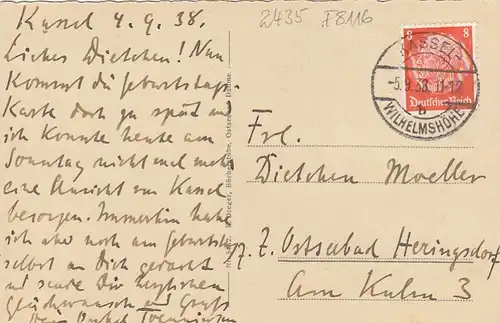 Kassel 4.9.38.
Liebes Dietchen! Nun
kommt die Geburtstags-
karte doch zu spät und
ich konnte heute am
Sonntag nicht mal mehr
eine Ansicht von Kassel
besorgen. Immerhin habe
ich aber noch am Geburtstag
selbst an Dich gedacht
und sende Dir herzlichen
Glückwunsch und Gruß
Dein Onkel
2435 F8116
8 8
KASSEL-
-5.9.38.
b
WILHELMSHÖHE
Deutsches Reich
Frl.
Dietchen Moeller
z. Z. Ostseebad Heringsdorf
Am Kulm 3